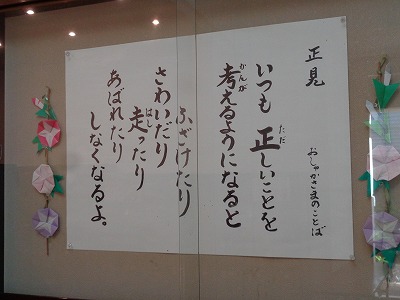 正見
おしゃかさまのことば
いつも正しいことを
考えるようになると
ふざけたり
さわいだり
走ったり
あばれたり
しなくなるよ。